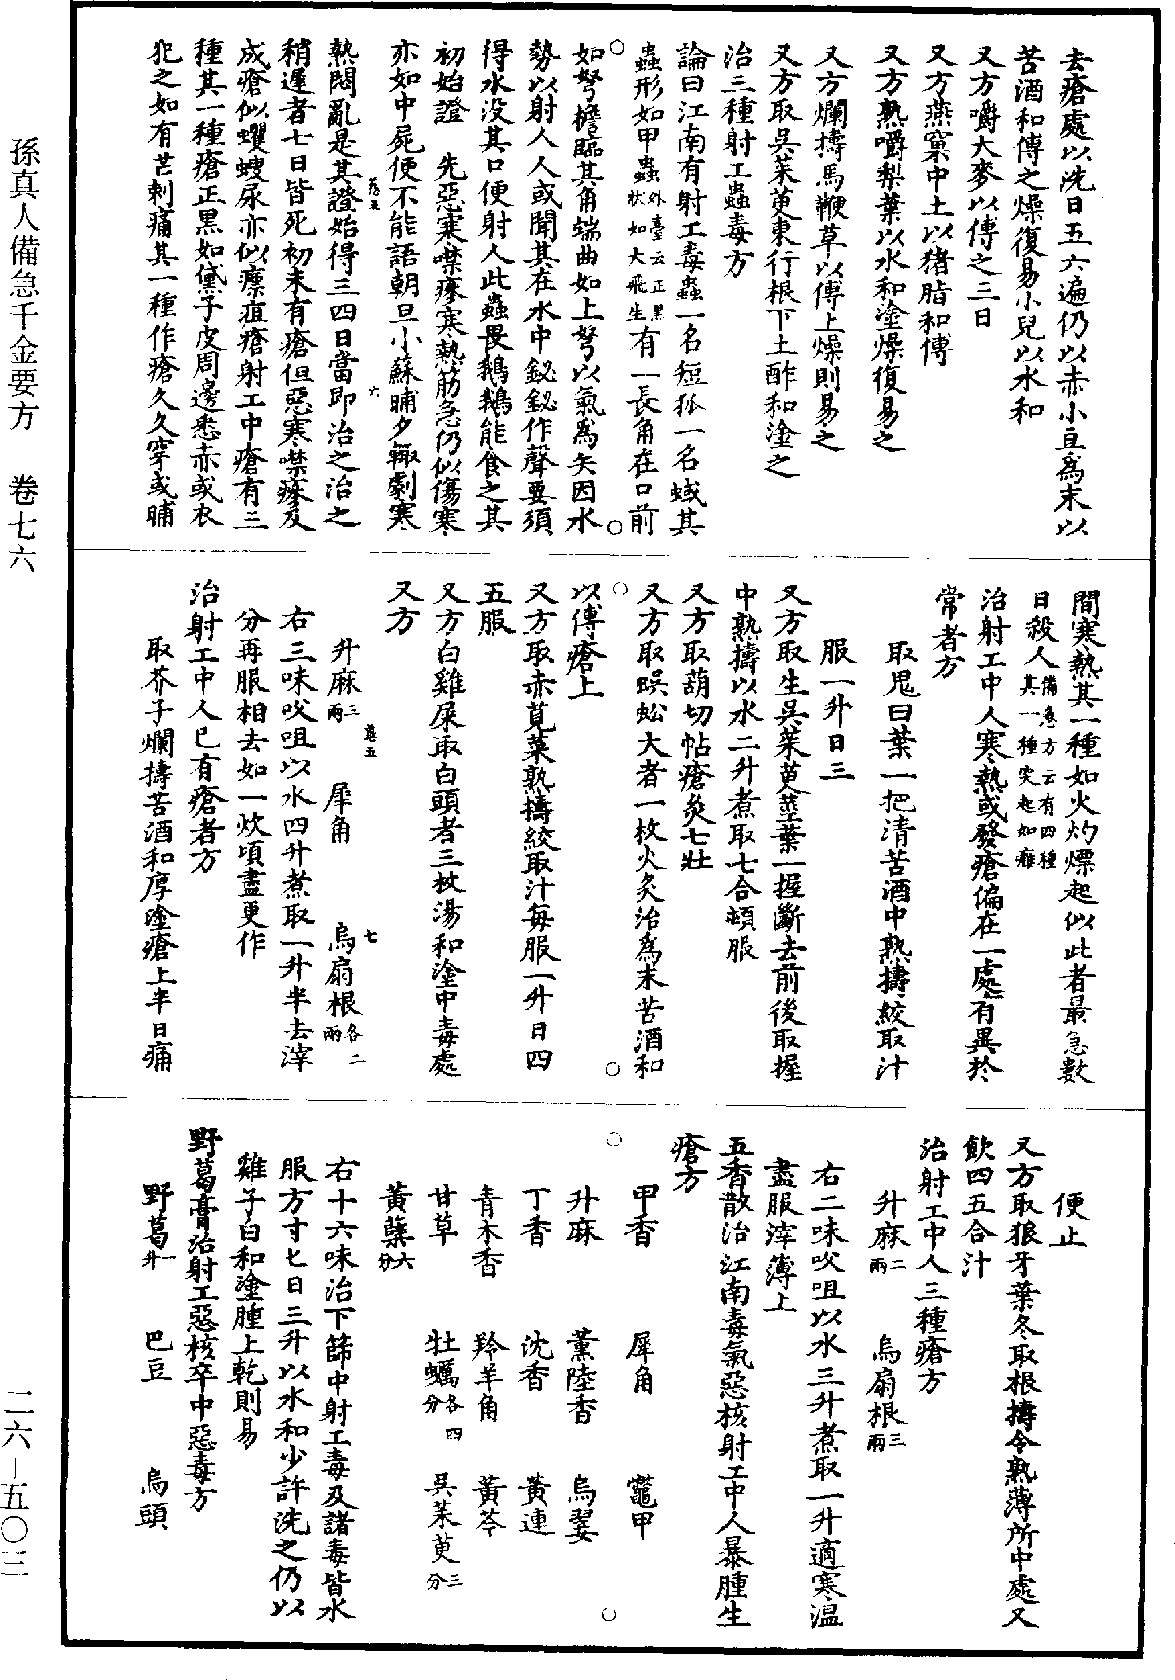 孫真人備急千金要方　卷七六
二六—五〇三
去瘡處以洗日五六遍仍以赤小豆爲末以
苦酒和傅之燥復易小兒以水和
又方嚼大麥以傅之三日
又方燕窠中土以猪脂和傅
又方熟嚼梨葉以水和塗燥復易之
又方爛擣馬鞭草以傅上燥則易之
又方取吳茱萸東行根下土酢和塗之
治三種射工蟲毒方
論曰江南有射工毒蟲一名短狐一名蜮其
蟲形如甲蟲外臺云正黑狀如大飛生有一長角在口前
如弩檐臨其角端曲如上弩以氣爲矢因水
勢以射人人或聞其在水中鉍鉍作聲要須
得水没其口便射人此蟲畏鵝鵝能食之其
初始證　先惡寒噤瘮寒熱筋急仍似傷寒
亦如中屍便不能語朝旦小蘇晡夕輙劇寒
熱悶亂是其證始得三四日當即治之治之
稍遲者七日皆死初未有瘡但惡寒噤瘮及
成瘡似蠼螋尿亦似瘭疽瘡射工中瘡有三
種其一種瘡正黑如黛子皮周邊悉赤或衣
犯之如有芒刺痛其一種作瘡久久穿或晡
間寒熱其一種如火灼熛起似此者最急數
日殺人備急方云有四種其一種突起如癰
治射工中人寒熱或發瘡偏在一處有異於
常者方
取鬼臼葉一把清苦酒中熟擣絞取汁
服一升日三
又方取生吳茱萸莖葉一握斷去前後取握
中熟擣以水二升煮取七合頓服
又方取葫切帖瘡灸七壯
又方取蜈蚣大者一枚火炙治爲末苦酒和
以傅瘡上
又方取赤莧菜熟擣絞取汁每服一升日四
五服
又方白雞屎取白頭者三枚湯和塗中毒處
又方
升麻三兩　犀角　烏扇根各二兩
右三味㕮咀以水四升煮取一升半去滓
分再服相去如一炊頃盡更作
治射工中人已有瘡者方
取芥子爛擣苦酒和厚塗瘡上半日痛
便止
又方取狼牙葉冬取根擣令熟薄所中處又
飲四五合汁
治射工中人三種瘡方
升麻二兩　烏扇根三兩
右二味㕮咀以水三升煮取一升適寒溫
盡服滓薄上
五香散治江南毒氣惡核射工中人暴腫生
瘡方
甲香　犀角　鼈甲
升麻　薰陸香　烏翣
丁香　沈香　黃連
青木香　羚羊角　黃芩
甘草　牡蠣各四分　吳茱萸三分
黃蘗六分
右十六味治下篩中射工毒及諸毒皆水
服方寸匕日三升以水和少許洗之仍以
雞子白和塗腫上乾則易
野葛膏治射工惡核卒中惡毒方
野葛一升　巴豆　烏頭